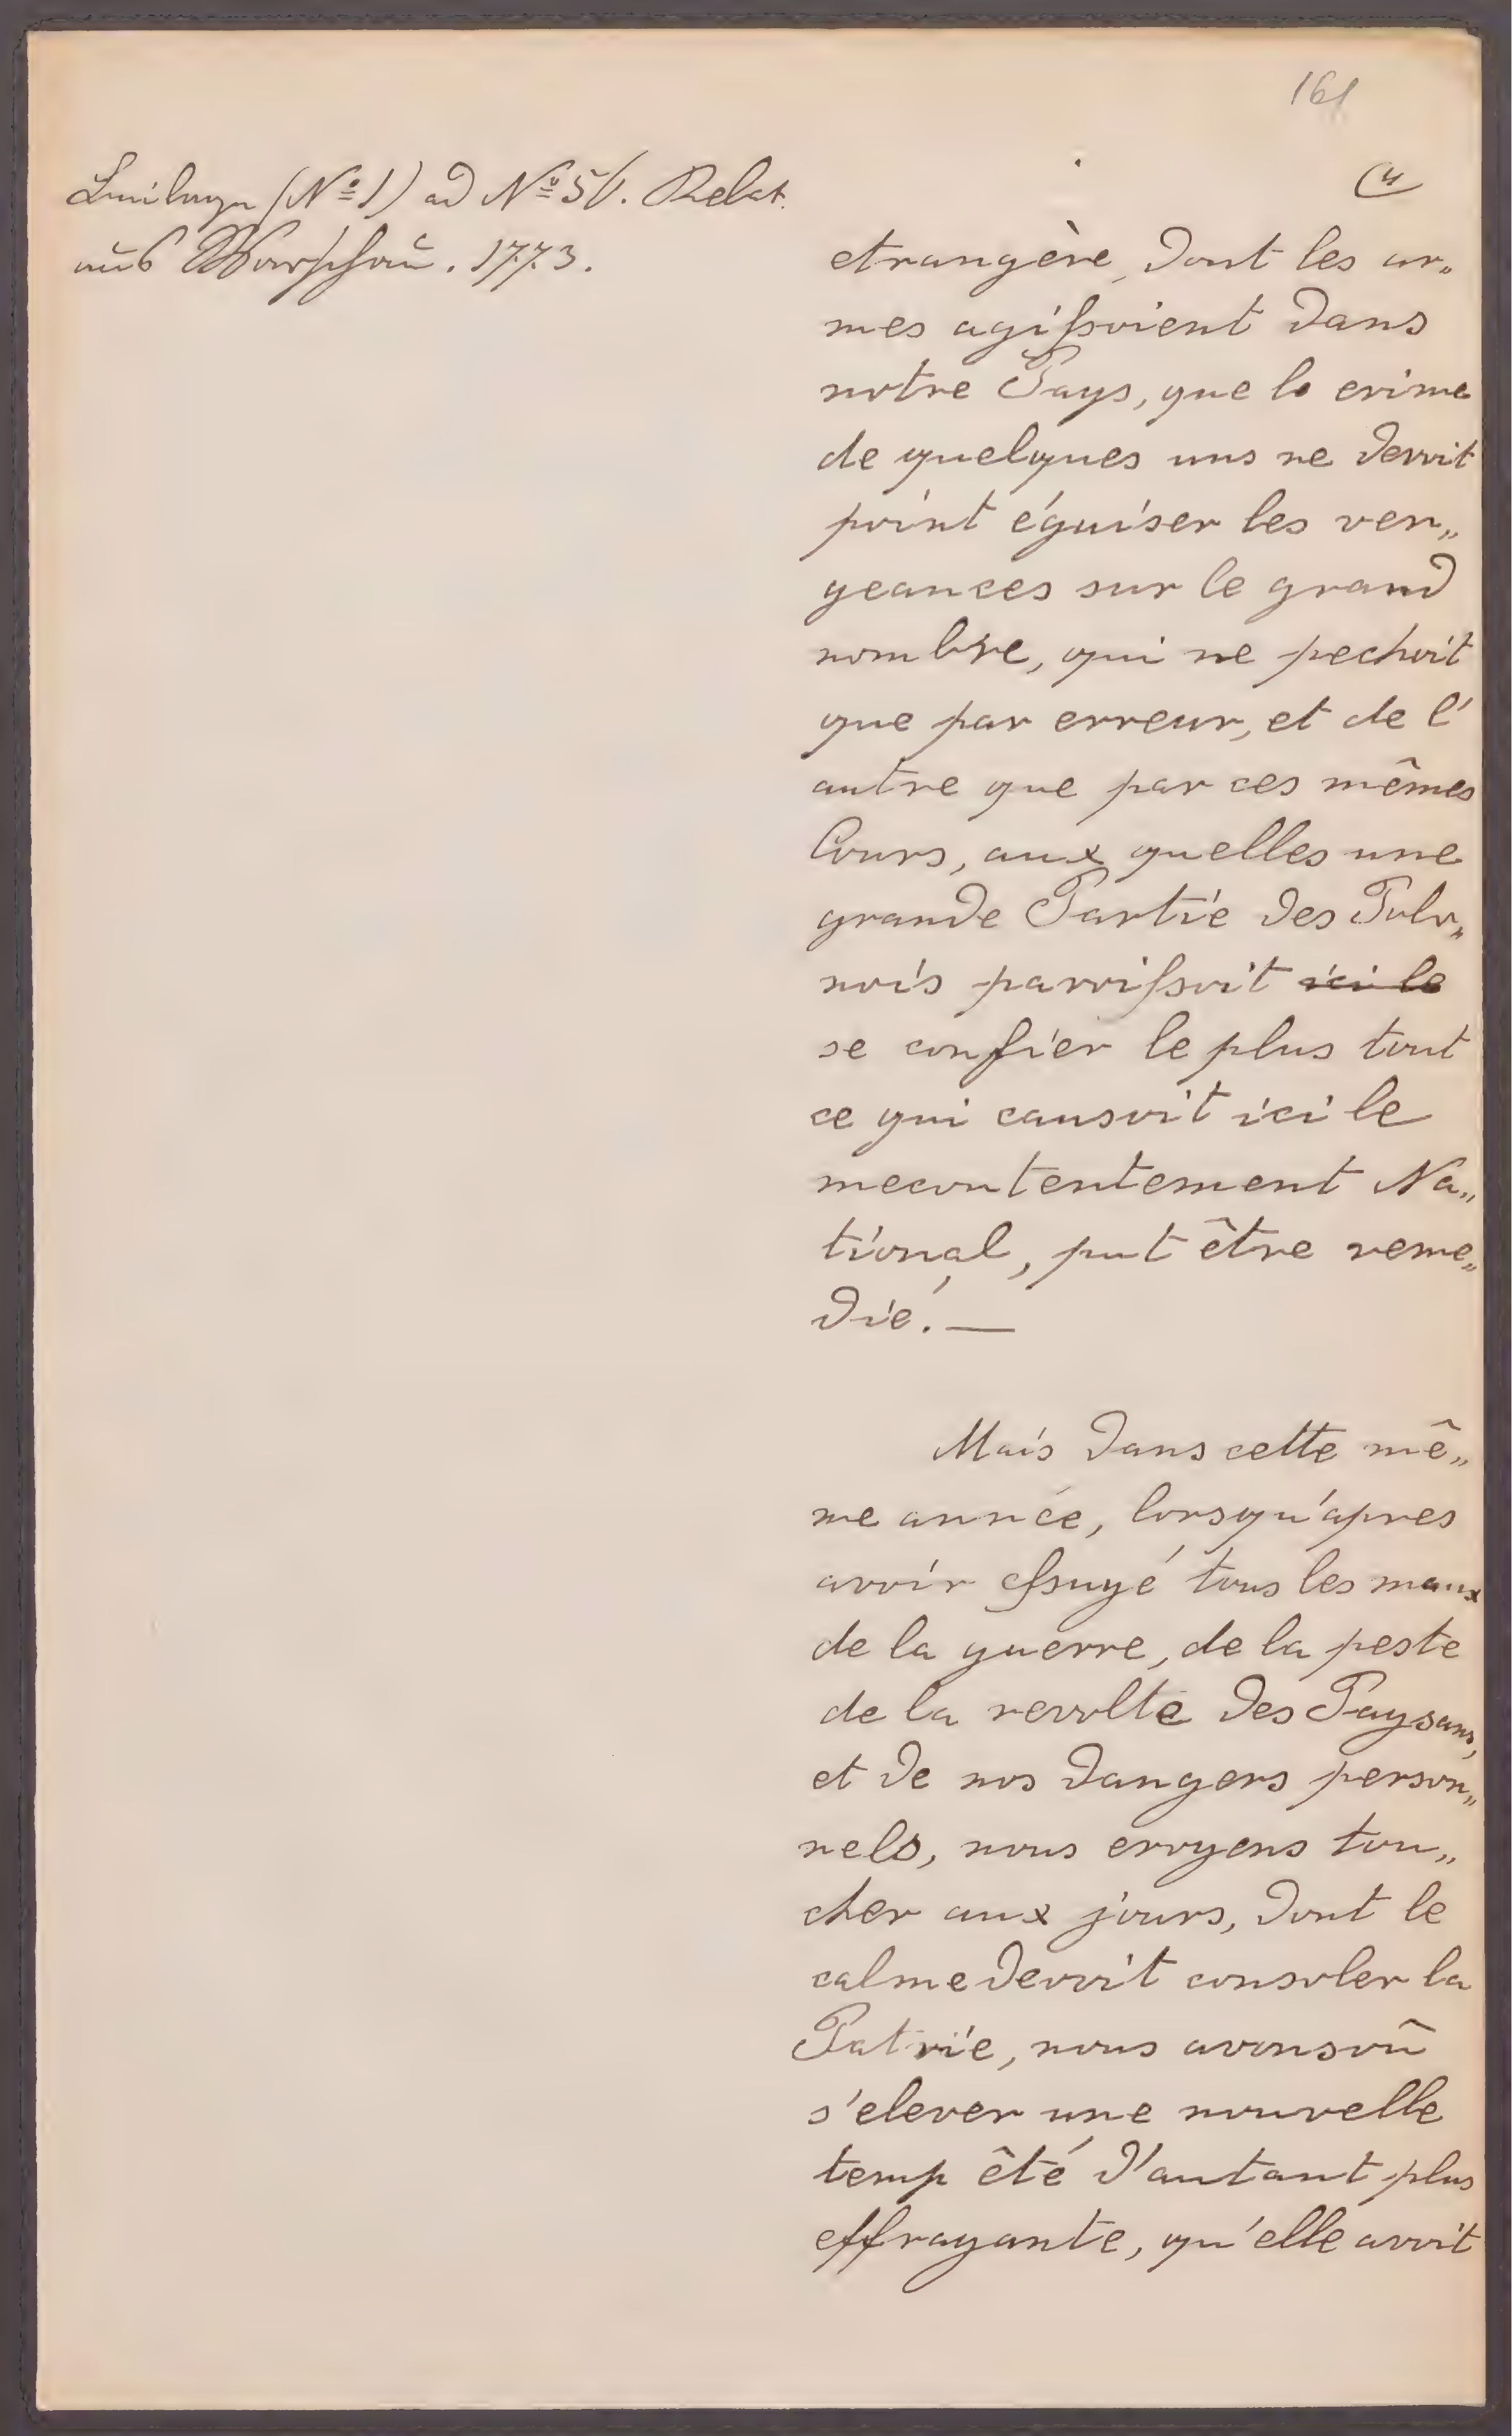 161
Beilage (Nº 1) ad Nº 56. Relat.
aus Warschau. 1773.
etrangère, dont les ar„
mes agissoient dans
notre Pays, que le crime
de quelques uns ne devoit
point éguiser les ven„
geances sur le grand
nombre, qui ne pechoit
que par erreur, et de l'
autre que par ces mêmes
Cours, aux quelles une
grande Partie des Polo„
nois paroissoit ~~ici le~~
se confier le plus tout
ce qui causoit ici le
mecontentement Na„
tional, put être reme„
dié. —
Mais dans cette mê„
me année, lorsqu'apres
avoir essuyé tous les maux
de la guerre, de la peste
de la revolte des Paysans,
et de nos dangers person„
nels, nous croyens tou„
cher aux jours, dont le
calme devoit consoler la
Patrie, nous avons vû
s'elever une nouvelle
temp êté d'autant plus
effrayante, qu'elle avoit